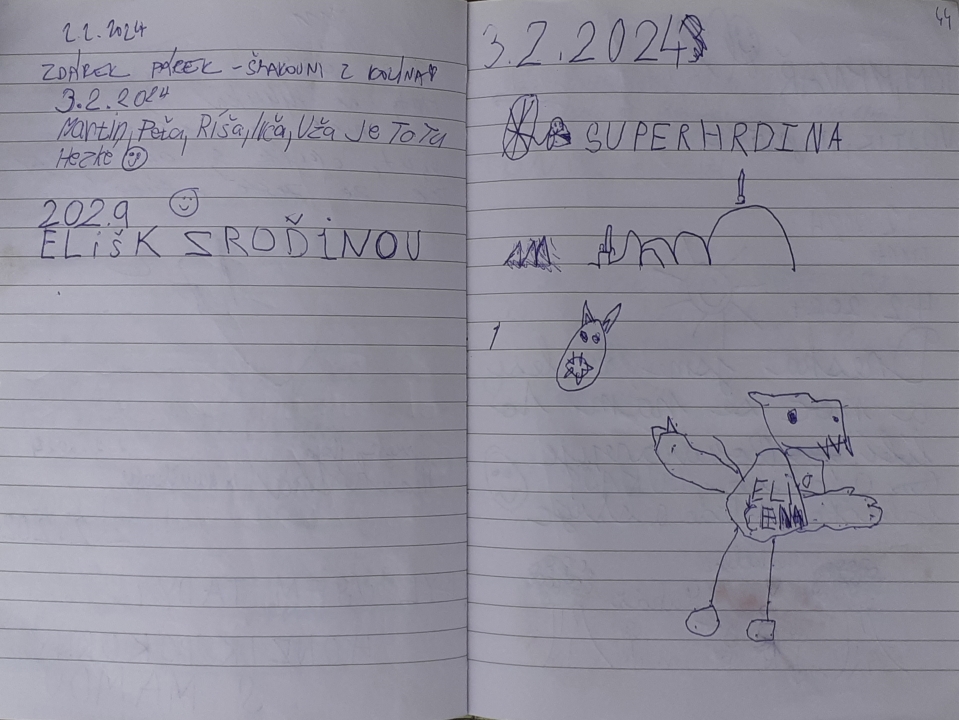 2.2.2024
ZDÁREK PÁREK - ŠŤAKOVNI Z KOLÍNA
3.2.2024
Martin, Peťa, Ríša, Vžá Je To Tu
Hezké
2029
ELiŠK S RODINOU
44
3.2.2024
SUPERHRDINA
1
ELI
CENA